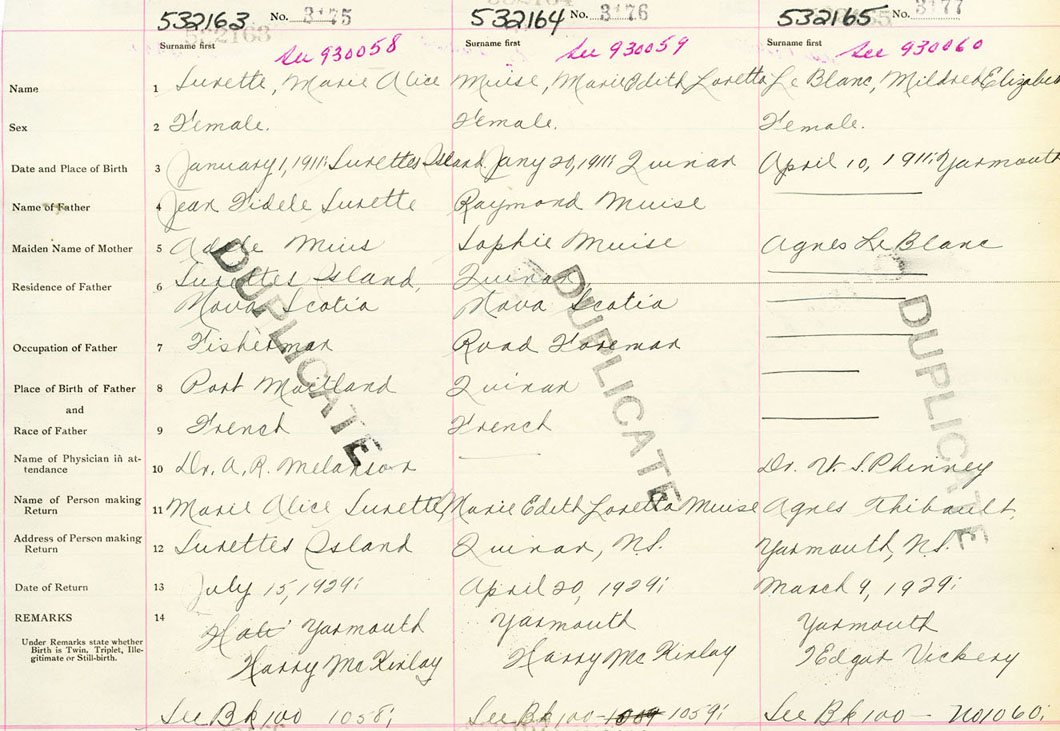 532163 No. 3175 532164 No. 3176 532165 No. 3177
Surname first See 930058 Surname first See 930059 Surname first See 930060
Name 1 Surette, Marie Alice Muise, Marie Edith Loretta Le Blanc, Mildred Elizabeth
Sex 2 Female. Female. Female.
Date and Place of Birth 3 January 1, 1911; Surettes Island Jany 20, 1911; Quinan April 10, 1911; Yarmouth
Name of Father 4 Jean Fidele Surette Raymond Muise
Maiden Name of Mother 5 Adele Mius Sophie Muise Agnes Le Blanc
Residence of Father 6 Surettes Island, Quinan,
Nova Scotia Nova Scotia
Occupation of Father 7 Fisherman Road Foreman
Place of Birth of Father 8 Port Maitland Quinan
and
Race of Father 9 French French
Name of Physician in at-
tendance 10 Dr. A. R. Melanson Dr. W. S. Phinney
Name of Person making
Return 11 Marie Alice Surette, Marie Edith Loretta Muise Agnes Thibault,
Address of Person making
Return 12 Surettes Island Quinan, N.S. Yarmouth, N.S.
Date of Return 13 July 15, 1929; April 20, 1929; March 9, 1929;
REMARKS 14 Yarmouth Yarmouth Yarmouth
Under Remarks state whether
Birth is Twin, Triplet, Ille-
gitimate or Still-birth.
Harry McKinlay Harry McKinlay Edgar Vickery
See Bk 100 1058; See Bk 100 - 1059; See Bk 100 - No 1060;
DUPLICATE DUPLICATE DUPLICATE